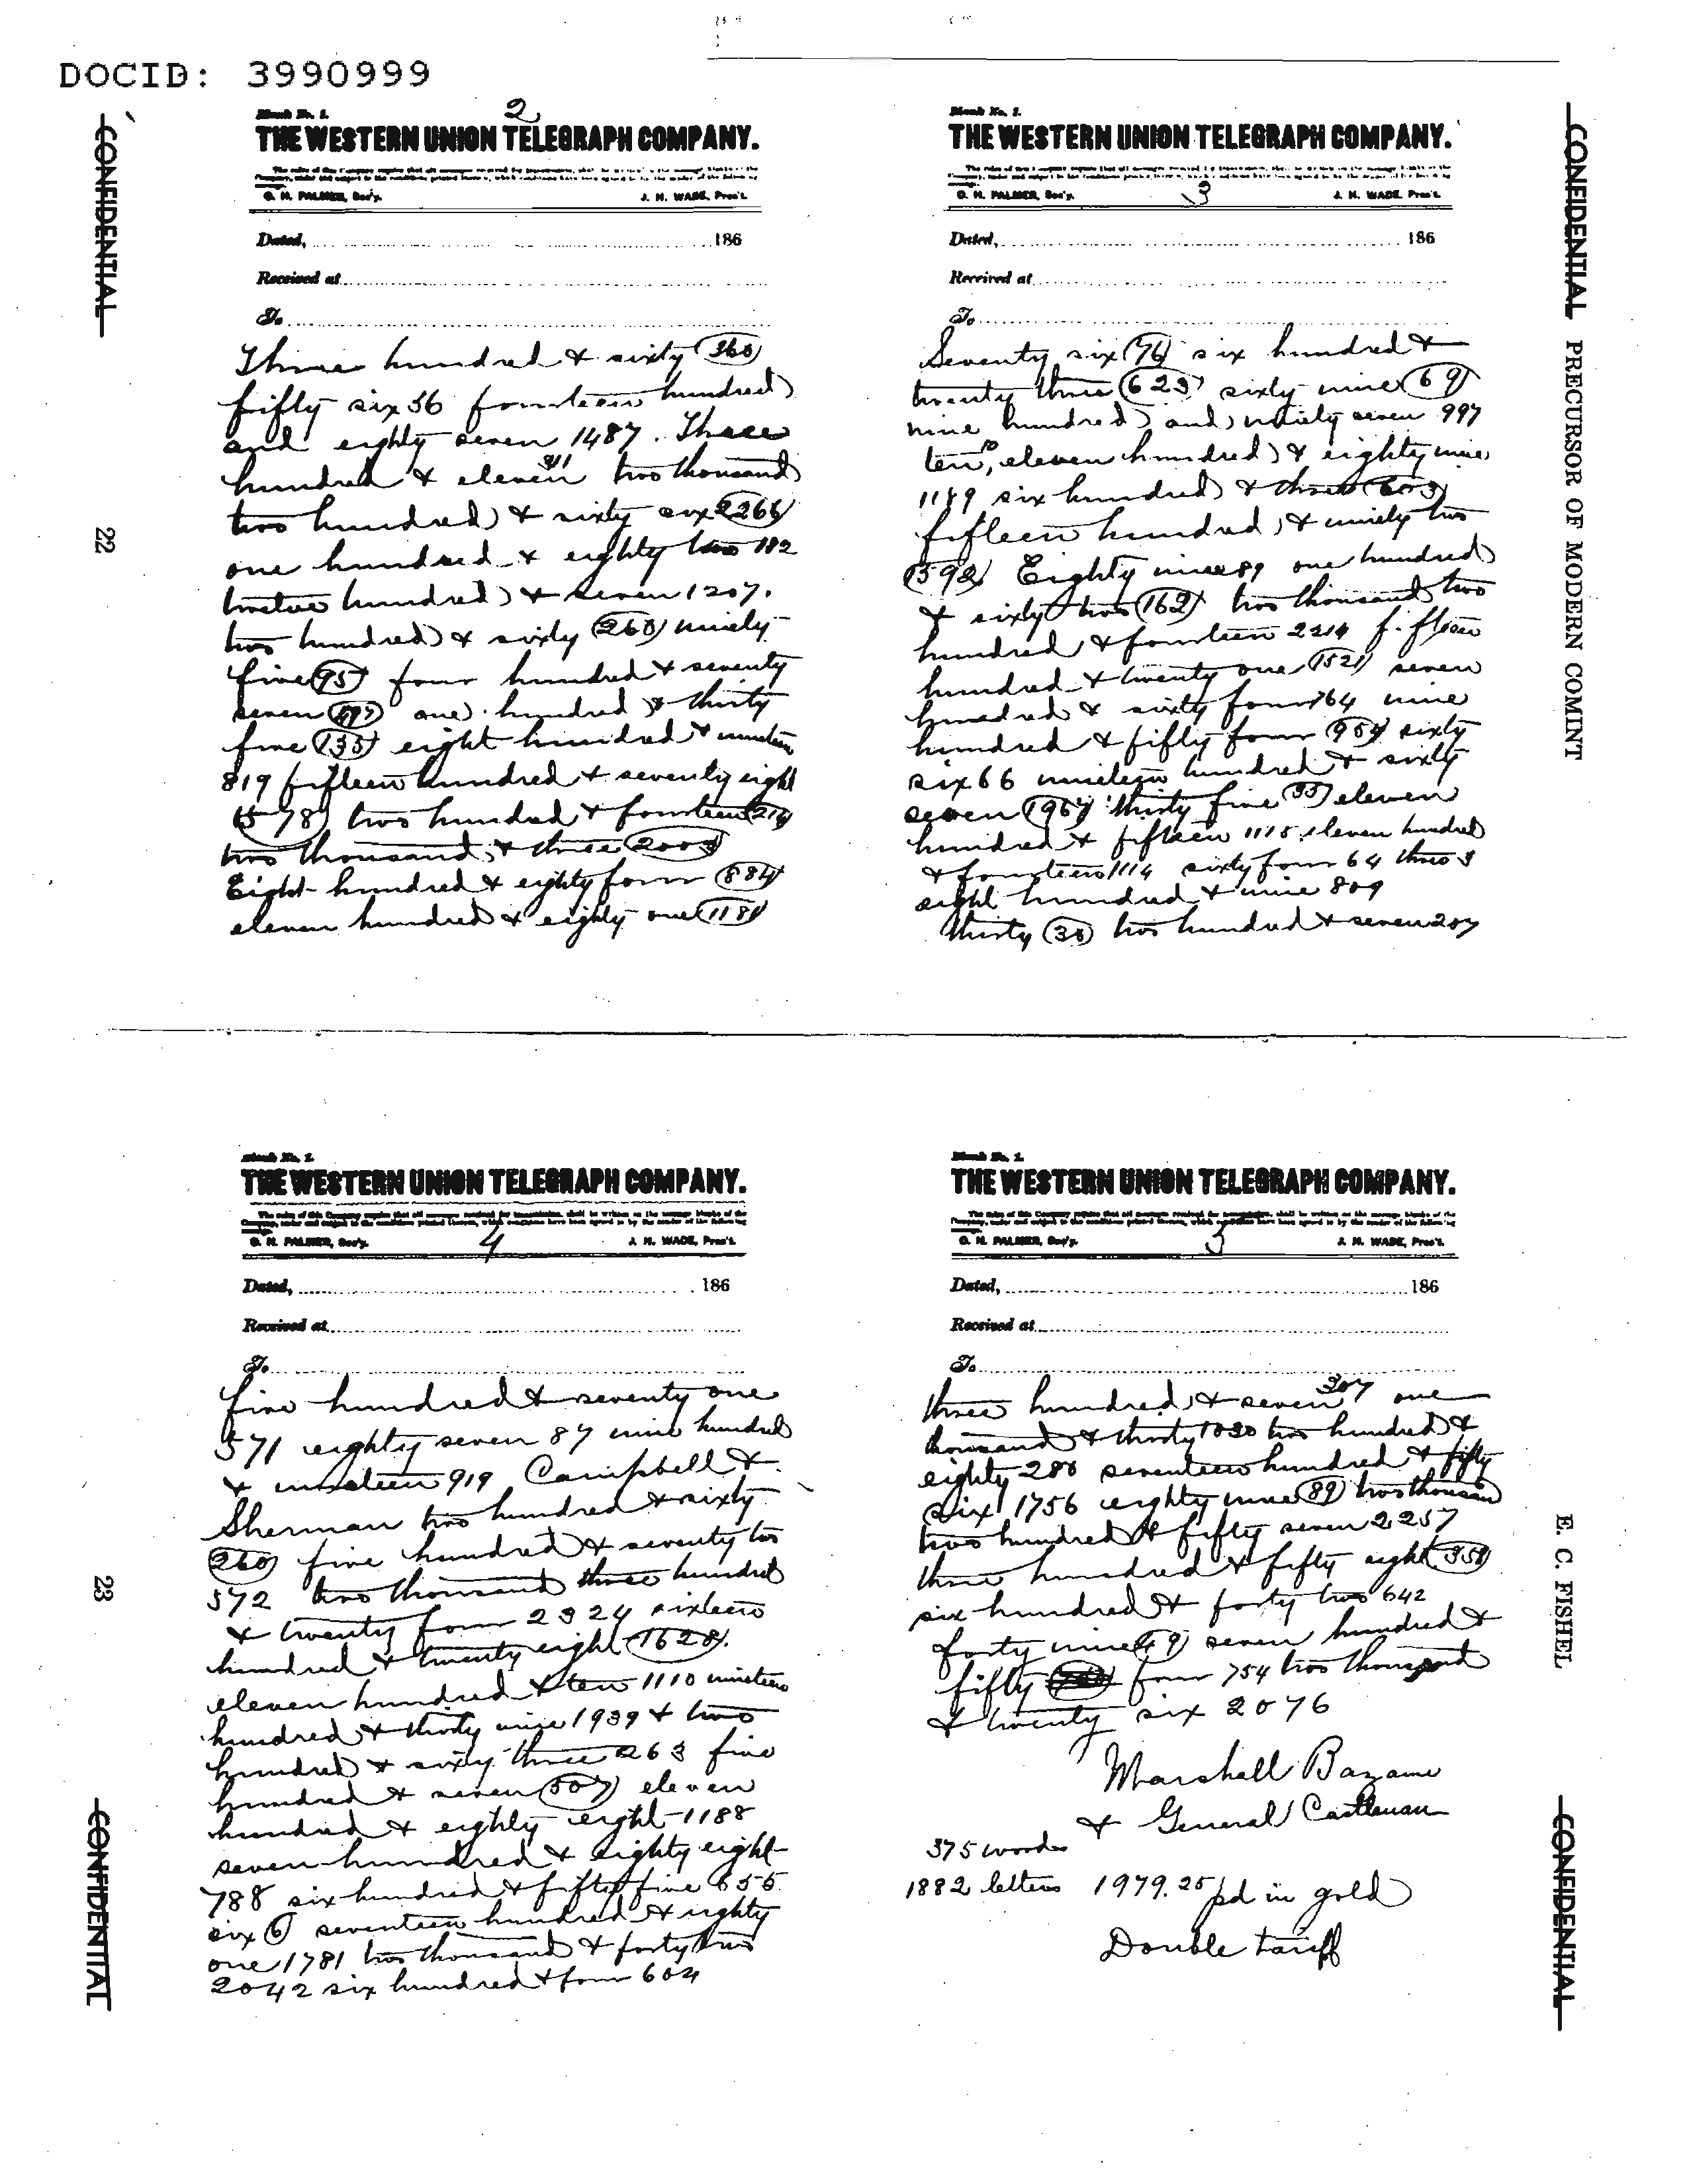 DOCID: 3990999
CONFIDENTIAL
22
2
THE WESTERN UNION TELEGRAPH COMPANY.
O. H. PALMER, Sec'y. J. H. WADE, Pres't.
Dated, 186
Received at
To
Three hundred & sixty 360
fifty six 56 fourteen hundred
and eighty seven 1487. Three
hundred & eleven 311 two thousand
two hundred & sixty six 2266
one hundred & eighty two 182
twelve hundred & seven 1207.
two hundred & sixty 260 ninety
five 95 four hundred & seventy
seven 477 one hundred & thirty
five 135 eight hundred & nineteen
819 fifteen hundred & seventy eight
1578 two hundred & fourteen 214
two thousand & three 2003
Eight hundred & eighty four 884
eleven hundred & eighty one 1181
Blank No. 1.
THE WESTERN UNION TELEGRAPH COMPANY.
O. H. PALMER, Sec'y. 3 J. H. WADE, Pres't.
Dated, 186
Received at
To
Seventy six 76 six hundred &
twenty three 623 sixty nine 69
nine hundred and ninety seven 997
ten 10, eleven hundred & eighty nine
1189 six hundred & three 603
fifteen hundred & ninety two
1592 Eighty nine 89 one hundred
& sixty two 162 two thousand two
hundred & fourteen 2214 fifteen
hundred & twenty one 1521 seven
hundred & sixty four 764 nine
hundred & fifty four 954 sixty
six 66 nineteen hundred & sixty
seven 1967 thirty five 35 eleven
hundred & fifteen 1115 eleven hundred
& fourteen 1114 sixty four 64 three 3
eight hundred & nine 809
thirty 30 two hundred & seven 207
CONFIDENTIAL PRECURSOR OF MODERN COMINT
23
CONFIDENTIAL
THE WESTERN UNION TELEGRAPH COMPANY.
O. H. PALMER, Sec'y. 4 J. H. WADE, Pres't.
Dated, 186
Received at
To
five hundred & seventy one
571 eighty seven 87 nine hundred
& nineteen 919 Campbell &
Sherman two hundred & sixty
260 five hundred & seventy two
572 two thousand three hundred
& twenty four 2324 sixteen
hundred & twenty eight 1628.
eleven hundred & ten 1110 nineteen
hundred & thirty nine 1939 & two
hundred & sixty three 263 five
hundred & seven 507 eleven
hundred & eighty eight 1188
seven hundred & eighty eight
788 six hundred & fifty five 655
six 6 seventeen hundred & eighty
one 1781 two thousand & forty two
2042 six hundred & four 604
THE WESTERN UNION TELEGRAPH COMPANY.
O. H. PALMER, Sec'y. 5 J. H. WADE, Pres't.
Dated, 186
Received at
To
three hundred & seven 307 one
thousand & thirty 1030 two hundred &
eighty 280 seventeen hundred & fifty
six 1756 eighty nine 89 two thousand
two hundred & fifty seven 2257
three hundred & fifty eight 358
six hundred & forty two 642
forty nine 49 seven hundred &
fifty four 754 two thousand
& twenty six 2076
Marshall Bazaine
& General Castleman
375 words
1882 letters 1979.25 pd in gold
Double tariff
E. C. FISHEL
CONFIDENTIAL